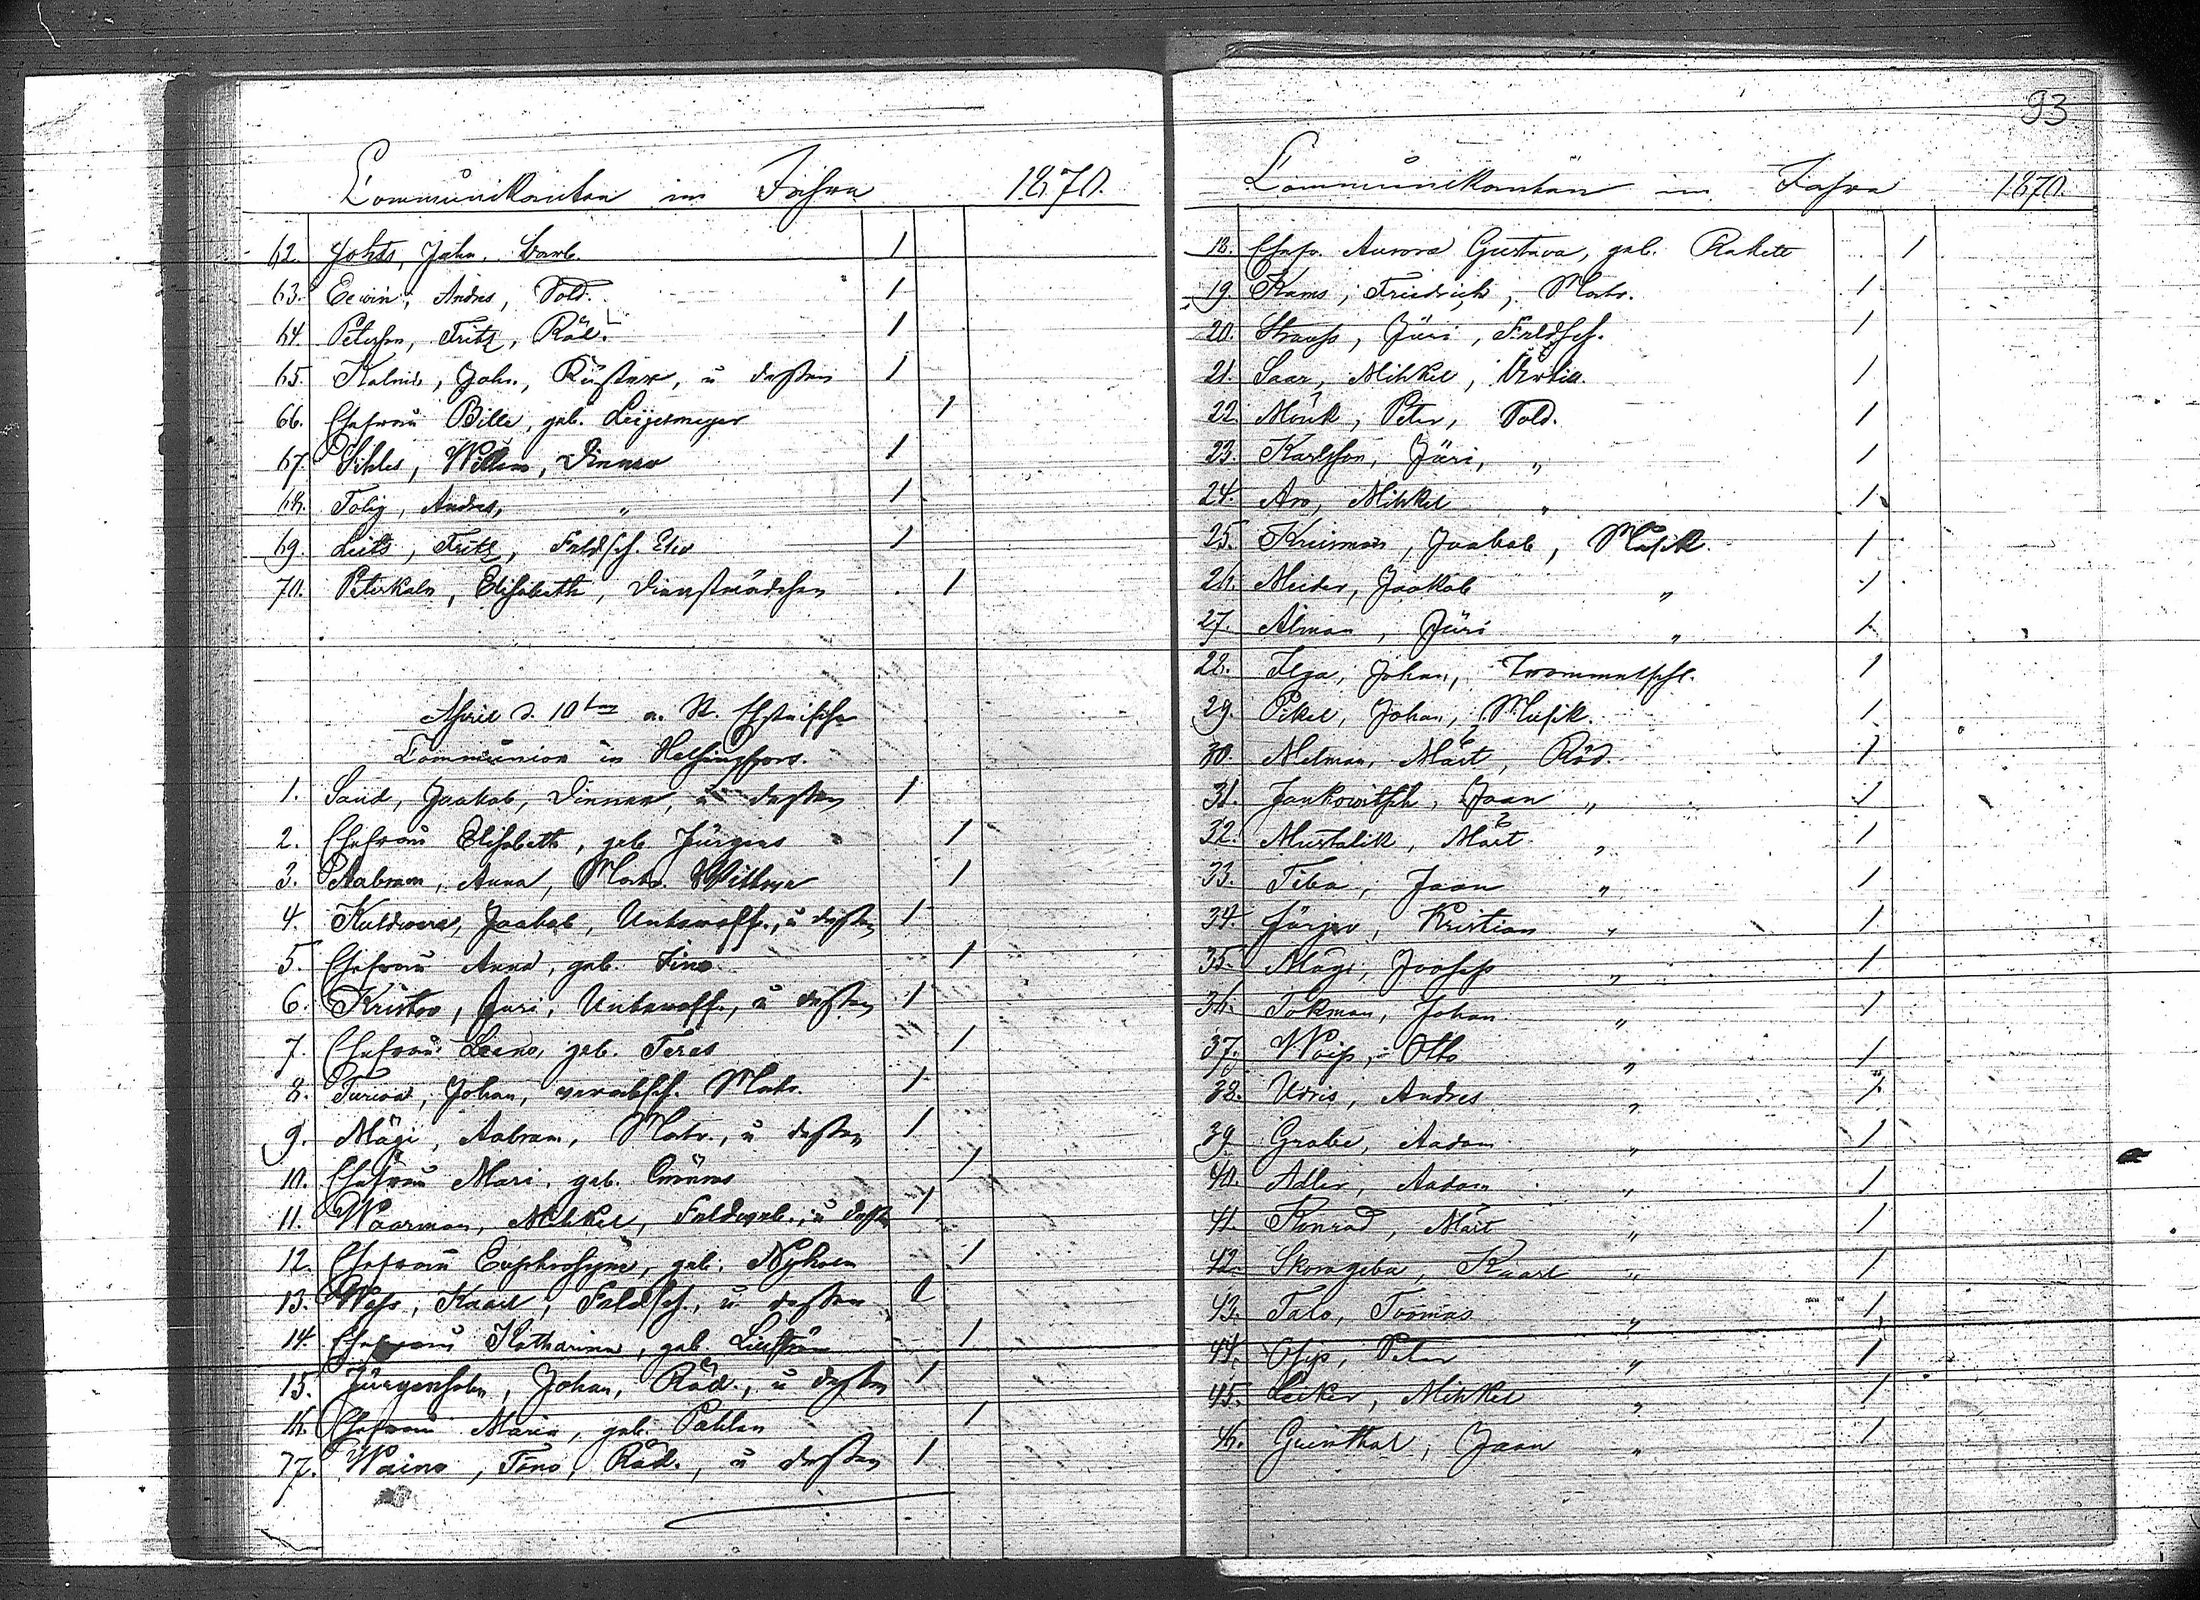 Communikanten im Jahre 1870.
62. Johts, Jahn, Barb. 1
63. Eewin, Andres, Sold. 1
64. Peterson, Fritz, Räd. 1
65. Kalnin, Jahn, Küster, u dessen 1
66. Ehefrau Bille, geb. 1
67. Sihles, Willem, Diener 1
68. Tolig, Andres, " 1
69. Leits, Fritz, Feldsch. Elev 1
70. Peterkaln, Elisabeth, Dienstmädchen 1
April d. 10ten a. St. Ehstnische
Communion in Helsingfors.
1. Sand, Jaakob, Diener, u dessen 1
2. Ehefrau Elisabeth, geb. Jürgens 1
3. Aabram, Anna, Matr. Wittwe 1
4. Kuldwere, Jaakob, Unteroff., u dessen 1
5. Ehefrau Anna, geb. 1
6. Kristow, Juri, Unteroff., u dessen 1
7. Ehefrau Leeno, geb. Teras 1
8. Johan, verabsch. Matr. 1
9. Mägi, Aabram, Matr., u dessen 1
10. Ehefrau Mari, geb. 1
11. Waarman, Mihkel, Feldweb., u dessen 1
12. Ehefrau Euphrosyne, geb. Nyholm 1
13. Wess, Kaarl, Feldsch., u dessen 1
14. Ehefrau Katharina, geb. 1
15. Jürgensohn, Johan, Räd., u dessen 1
16. Ehefrau Maria, geb. Pahlen 1
17. Waino, Tõno, Räd., u dessen 1
93
Communikanten im Jahre 1870.
18. Ehefr. Aurora Gustava, geb. Rakett 1
19. Kams, Friedrich, Matr. 1
20. Strauss, Jüri, Feldsch. 1
21. Saar, Mihkel, Artill. 1
22. Mönk, Peter, Sold. 1
23. Karlsson, Jüri, " 1
24. Aro, Mihkel " 1
25. Kreisman, Jaakob, Musik. 1
26. Meider, Jaakob " 1
27. Alman, Jüri " 1
28. Ilja, Johan, Trommelschl. 1
29. Pikel, Johan, Musik. 1
30. Melman, Märt, Räd. 1
31. Jankowitsch, Jaan " 1
32. Mustalik, Märt " 1
33. Tiba, Jaan " 1
34. Jürjew, Kristian " 1
35. Mägi, Joosep " 1
36. Tokman, Johan " 1
37. Waip, Otto " 1
38. Udris, Andres " 1
39. Grabe, Aadam " 1
40. Adler, Aadam " 1
41. Konrad, Märt " 1
42. Kaarl " 1
43. Talo, Toomas " 1
44. Osip, Peter " 1
45. Leiker, Mihkel " 1
46. Guinthal, Jaan " 1